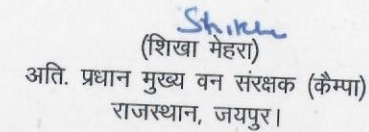 (शिखा मेहरा)
अति. प्रधान मुख्य वन संरक्षक (कैम्पा)
राजस्थान, जयपुर।